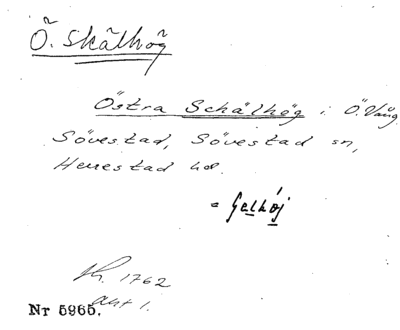 Ö. Skälhög
Östra Schälhög i Ö. Vång
Sövestad, Sövestad sn,
Herrestad hd.
= Gelhöj
1762
Akt 1.
Nr 5965.